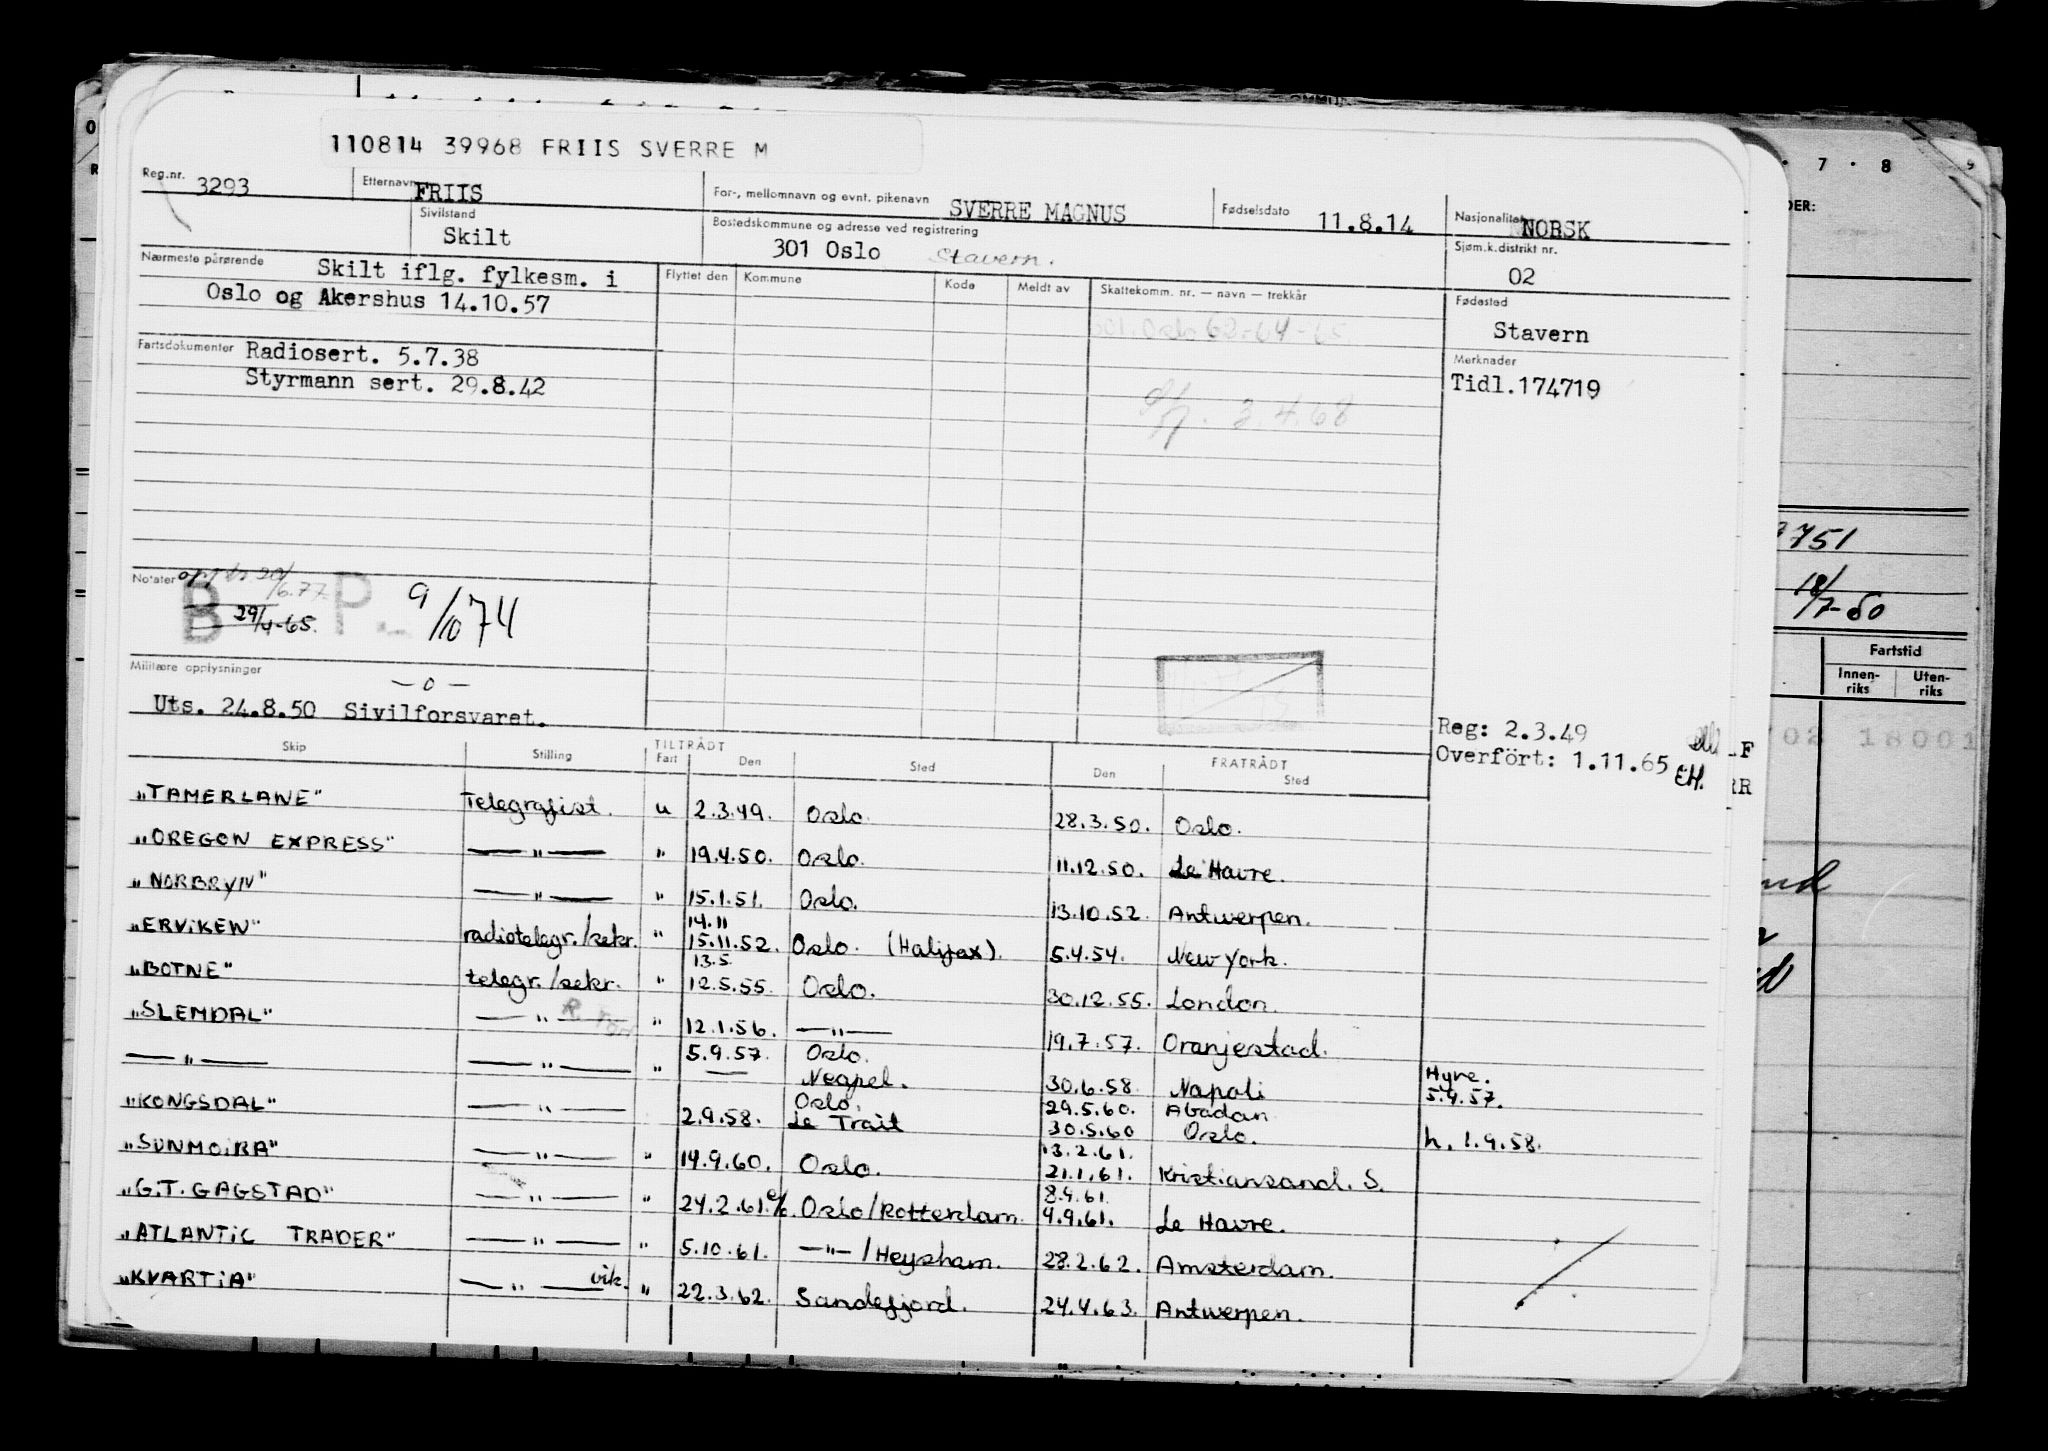 110814 39968 FRIIS SVERRE M
Reg.nr. 3293 Etternavn FRIIS For-, mellomnavn og evnt. pikenavn SVERRE MAGNUS Fødselsdato 11.8.14 Nasjonalitet NORSK
Sivilstand Skilt Bostedskommune og adresse ved registrering 301 Oslo Stavern. Sjøm.k.distrikt nr. 02
Nærmeste pårørende Skilt iflg. fylkesm. i
Oslo og Akershus 14.10.57
Flyttet den Kommune Kode Meldt av Skattekomm. nr. — navn — trekkår
Fødested
Stavern
301. Oslo 62-64-65.
Fartsdokumenter Radiosert. 5.7.38
Styrmann sert. 29.8.42
Merknader
Tidl.174719
3.4.68
Notater
20/6.77
B P.
29/4-65.
9/10 74
Militære opplysninger
— 0 —
Uts. 24.8.50 Sivilforsvaret.
Reg: 2.3.49
Overfört: 1.11.65 EH.
TILTRÅDT FRATRÅDT
Skip Stilling Fart Den Sted Den Sted
"TAMERLANE" Telegrafist. u 2.3.49. Oslo. 28.3.50. Oslo.
"OREGON EXPRESS" —"— " 19.4.50. Oslo. 11.12.50. Le Havre.
"NORBRYN" —"— " 15.1.51. Oslo. 13.10.52. Antwerpen.
14.11
"ERVIKEN" radiotelegr./sekr. " 15.11.52. Oslo. (Halifax). 5.4.54. New York.
13.5.
"BOTNE" telegr./sekr. " 12.5.55. Oslo. 30.12.55. London.
"SLEMDAL" —"— " 12.1.56. —"— 19.7.57. Oranjestad.
—"— —"— " 5.9.57. Oslo.
— Neapel. 30.6.58. Napoli Hyre. 5.9.57.
Oslo. 29.5.60. Abadan
"KONGSDAL" —"— 2.9.58. Le Trait 30.5.60 Oslo. h. 1.9.58.
13.2.61.
"SUNMOIRA" —"— " 14.9.60. Oslo. 21.1.61. Kristiansand. S.
8.9.61.
"G.T. GAGSTAD" —"— " 24.2.61. Oslo/Rotterdam. 9.9.61. Le Havre.
"ATLANTIC TRADER" —"— " 5.10.61. —"— /Heysham. 28.2.62. Amsterdam.
"KVARTIA" —"— vik. " 22.3.62. Sandefjord. 24.4.63. Antwerpen.
7 · 8 9
751
18/7-60
Fartstid
Innen-riks Uten-riks
02 18001